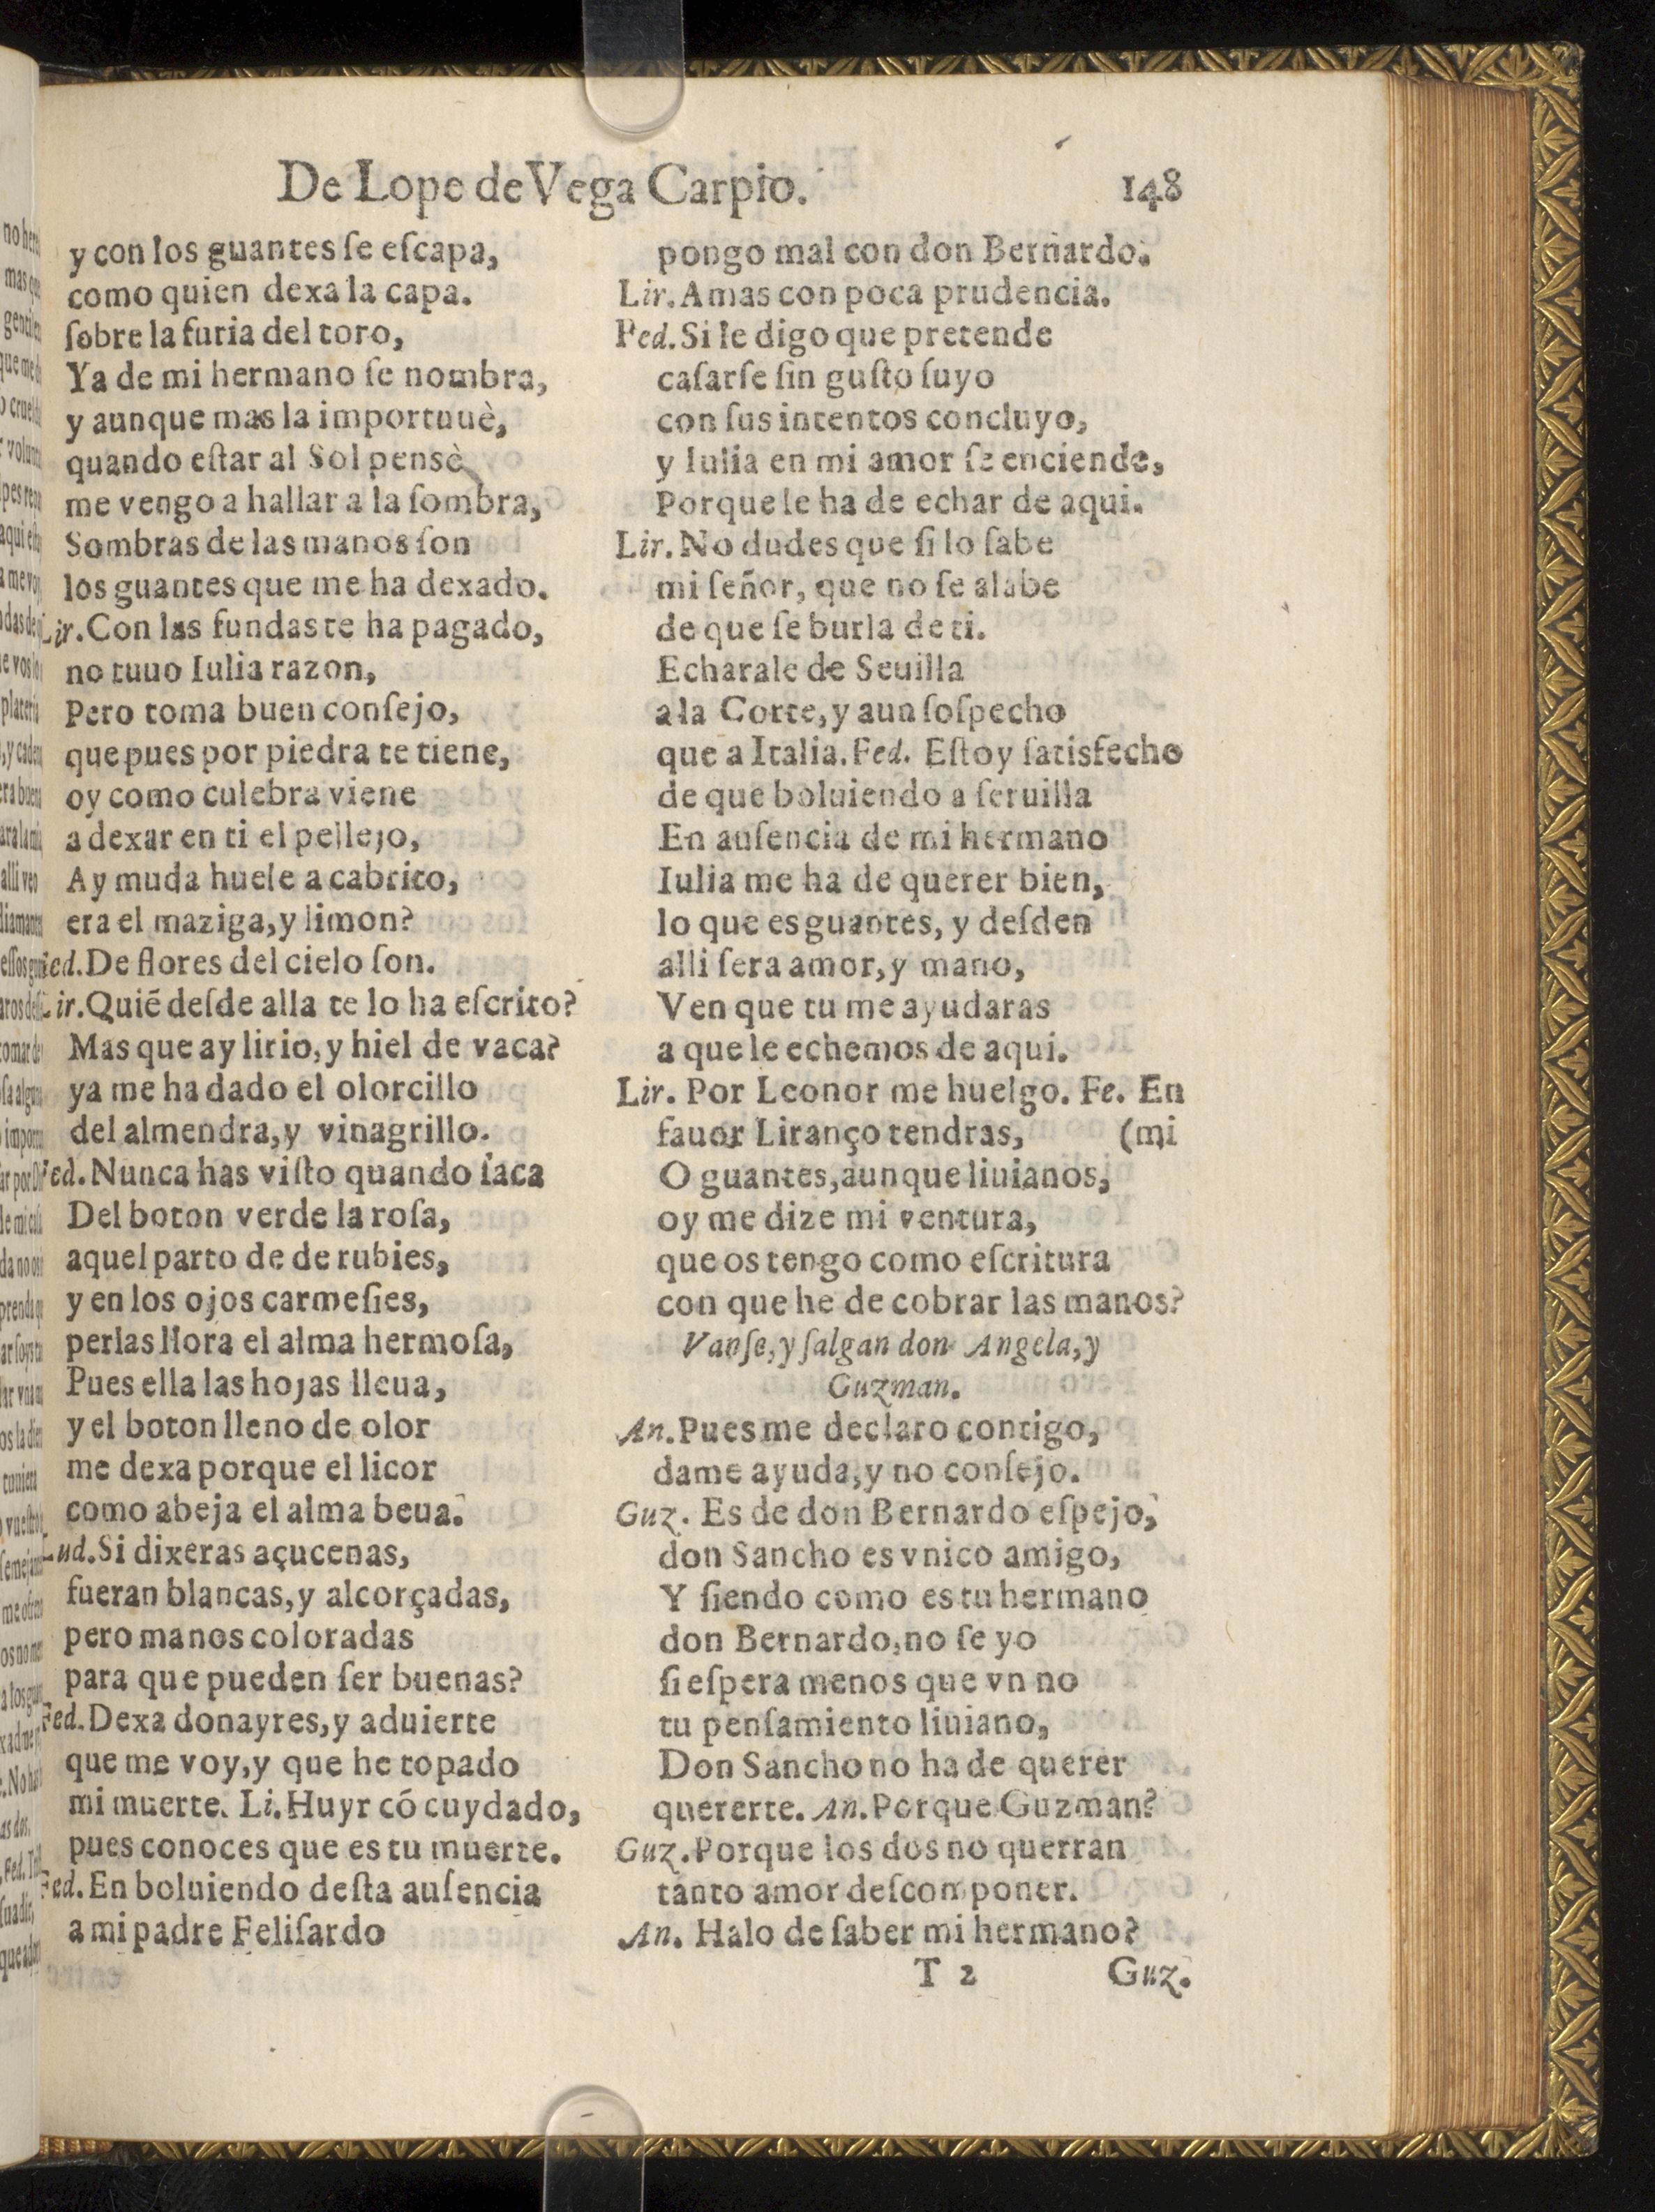 De Lope de Vega Carpio. 148
y con los guantes ſe eſcapa,
como quien dexa la capa.
ſobre la furia del toro,
Ya de mi hermano ſe nombra,
y aunque mas la importuuè,
quando eſtar al Sol pensè
me vengo a hallar a la ſombra,
Sombras de las manos ſon
los guantes que me ha dexado.
Lir. Con las fundas te ha pagado,
no tuuo Iulia razon,
Pero toma buen conſejo,
que pues por piedra te tiene,
oy como culebra viene
a dexar en ti el pellejo,
Ay muda huele a cabrito,
era el maziga, y limon?
Fed. De flores del cielo ſon.
Lir. Quiẽ deſde alla te lo ha eſcrito?
Mas que ay lirio, y hiel de vaca?
ya me ha dado el olorcillo
del almendra, y vinagrillo.
Fed. Nunca has viſto quando ſaca
Del boton verde la roſa,
aquel parto de de rubies,
y en los ojos carmeſies,
perlas llora el alma hermoſa,
Pues ella las hojas lleua,
y el boton lleno de olor
me dexa porque el licor
como abeja el alma beua.
Lud. Si dixeras açucenas,
fueran blancas, y alcorçadas,
pero manos coloradas
para que pueden ſer buenas?
Fed. Dexa donayres, y aduierte
que me voy, y que he topado
mi muerte. Li. Huyr cõ cuydado,
pues conoces que es tu muerte.
Fed. En boluiendo deſta auſencia
a mi padre Feliſardo
pongo mal con don Bernardo.
Lir. Amas con poca prudencia.
Fed. Si le digo que pretende
caſarſe ſin guſto ſuyo
con ſus intentos concluyo,
y Iulia en mi amor ſe enciende,
Porque le ha de echar de aqui.
Lir. No dudes que ſi lo ſabe
mi ſeñor, que no ſe alabe
de que ſe burla de ti.
Echarale de Seuilla
a la Corte, y aun ſoſpecho
que a Italia. Fed. Eſtoy ſatisfecho
de que boluiendo a ſeruilla
En auſencia de mi hermano
Iulia me ha de querer bien,
lo que es guantes, y deſden
alli ſera amor, y mano,
Ven que tu me ayudaras
a que le echemos de aqui.
Lir. Por Leonor me huelgo. Fe. En
fauor Liranço tendras, (mi
O guantes, aunque liuianos,
oy me dize mi ventura,
que os tengo como eſcritura
con que he de cobrar las manos?
Vanſe, y ſalgan don Angela, y
Guzman.
An. Pues me declaro contigo,
dame ayuda, y no conſejo.
Guz. Es de don Bernardo eſpejo,
don Sancho es vnico amigo,
Y ſiendo como es tu hermano
don Bernardo, no ſe yo
ſi eſpera menos que vn no
tu penſamiento liuiano,
Don Sancho no ha de querer
quererte. An. Porque Guzman?
Guz. Porque los dos no querran
tanto amor deſcomponer.
An. Halo de ſaber mi hermano?
T 2 Guz.